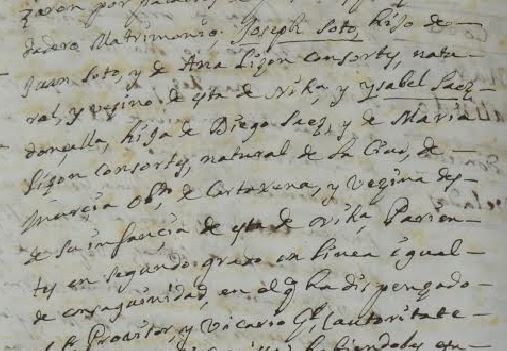 zaron por palabras
dadero Matrimonio, Joseph Soto, hijo de
Juan Soto, y de Ana Lizon consortes, natu-
ral, y vezino de esta de y Ysabel Saez
donzella, hija de Diego Saez, y de Maria
Lizon consortes, natural de la Ciud, de
Murcia Obpdo de Cartaxena, y vezina des-
de su infançia de esta de Parien-
tes en segundo grado en linea igual
de consaguinidad, en el q ha dispensado
el Provisor, y Vicario Gl, (autoritate